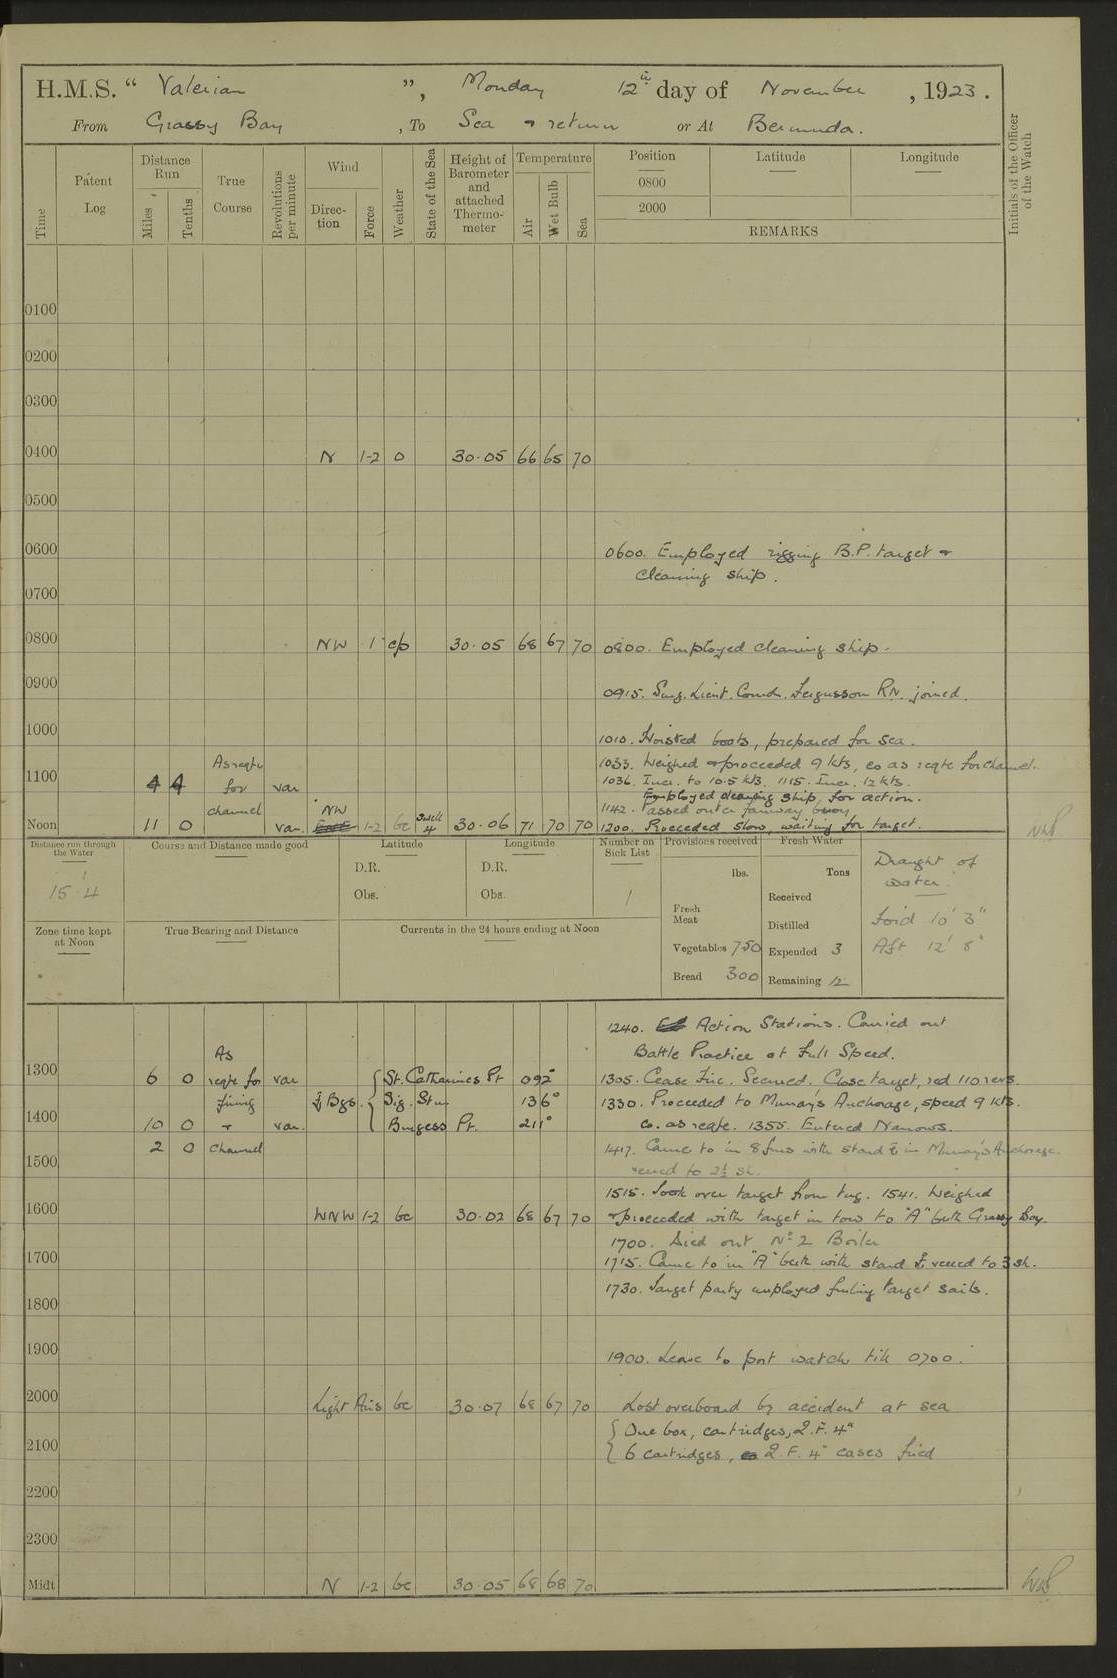 H.M.S. “ Valerian ”, Monday 12th day of November, 1923.
From Grassy Bay, To Sea & return or At Bermuda.
Time
Patent Log
Distance Run
Miles
Tenths
True Course
Revolutions per minute
Wind
Direction
Force
Weather
State of the Sea
Height of Barometer and attached Thermometer
Temperature
Air
Wet Bulb
Sea
Position
Latitude
Longitude
0800
2000
REMARKS
Initials of the Officer of the Watch
0100
0200
0300
0400 N 1-2 o 30.05 66 65 70
0500
0600 0600. Employed rigging B.P. target &
cleaning ship.
0700
0800 NW 1 c/p 30.05 68 67 70 0800. Employed cleaning ship.
0900 0915. Surg. Lieut. Comdr. Fergusson RN. joined.
1000 1010. Hoisted boats, prepared for sea.
As reqte 1033. Weighed & proceeded 9 kts, co as reqte for channel.
1100 4 4 for var 1036. Incr. to 10.5 kts. 1115. Incr. 12 kts.
Employed clearing ship for action.
channel NW Swell 1142. Passed outer fairway buoy
Noon 11 0 var. 1-2 bc 4 30.06 71 70 70 1200. Proceeded slow, waiting for target.
NWS
Distance run through the Water
15.4
Course and Distance made good
Latitude
D.R.
Obs.
Longitude
D.R.
Obs.
Number on Sick List
1
Provisions received
lbs.
Fresh Meat
Vegetables 750
Bread 300
Fresh Water
Tons
Received
Distilled
Expended 3
Remaining 12
Draught of
water.
For'd 10' 3"
Aft 12' 8"
Zone time kept at Noon
True Bearing and Distance
Currents in the 24 hours ending at Noon
1240. Action Stations. Carried out
As Battle Practice at Full Speed.
1300 6 0 reqte for var St. Catharines Pt 092° 1305. Cease Fire. Secured. Close target, red 110 revs.
firing Bgs. Sig. Stn 136° 1330. Proceeded to Murray's Anchorage, speed 9 kts.
1400 10 0 & var. Burgess Pt. 211° Co. as reqte. 1355. Entered Narrows.
2 0 channel 1417. Came to in 8 fms with stand in Murray's Anchorage.
1500 veered to 2½ sh.
1515. Took over target from tug. 1541. Weighed
1600 WNW 1-2 bc 30.02 68 67 70 & proceeded with target in tow to "A" berth Grassy Bay.
1700. Died out No 2 Boiler
1700 1715. Came to in "A" berth with stand veered to 3 sh.
1730. Target party employed furling target sails.
1800
1900 1900. Leave to port watch till 0700.
2000 Light Airs bc 30.07 68 67 70 Lost overboard by accident at sea
One box, cartridges, Q.F. 4"
2100 6 cartridges, Q.F. 4" cases fired
2200
2300
Midt N 1-2 bc 30.05 68 68 70